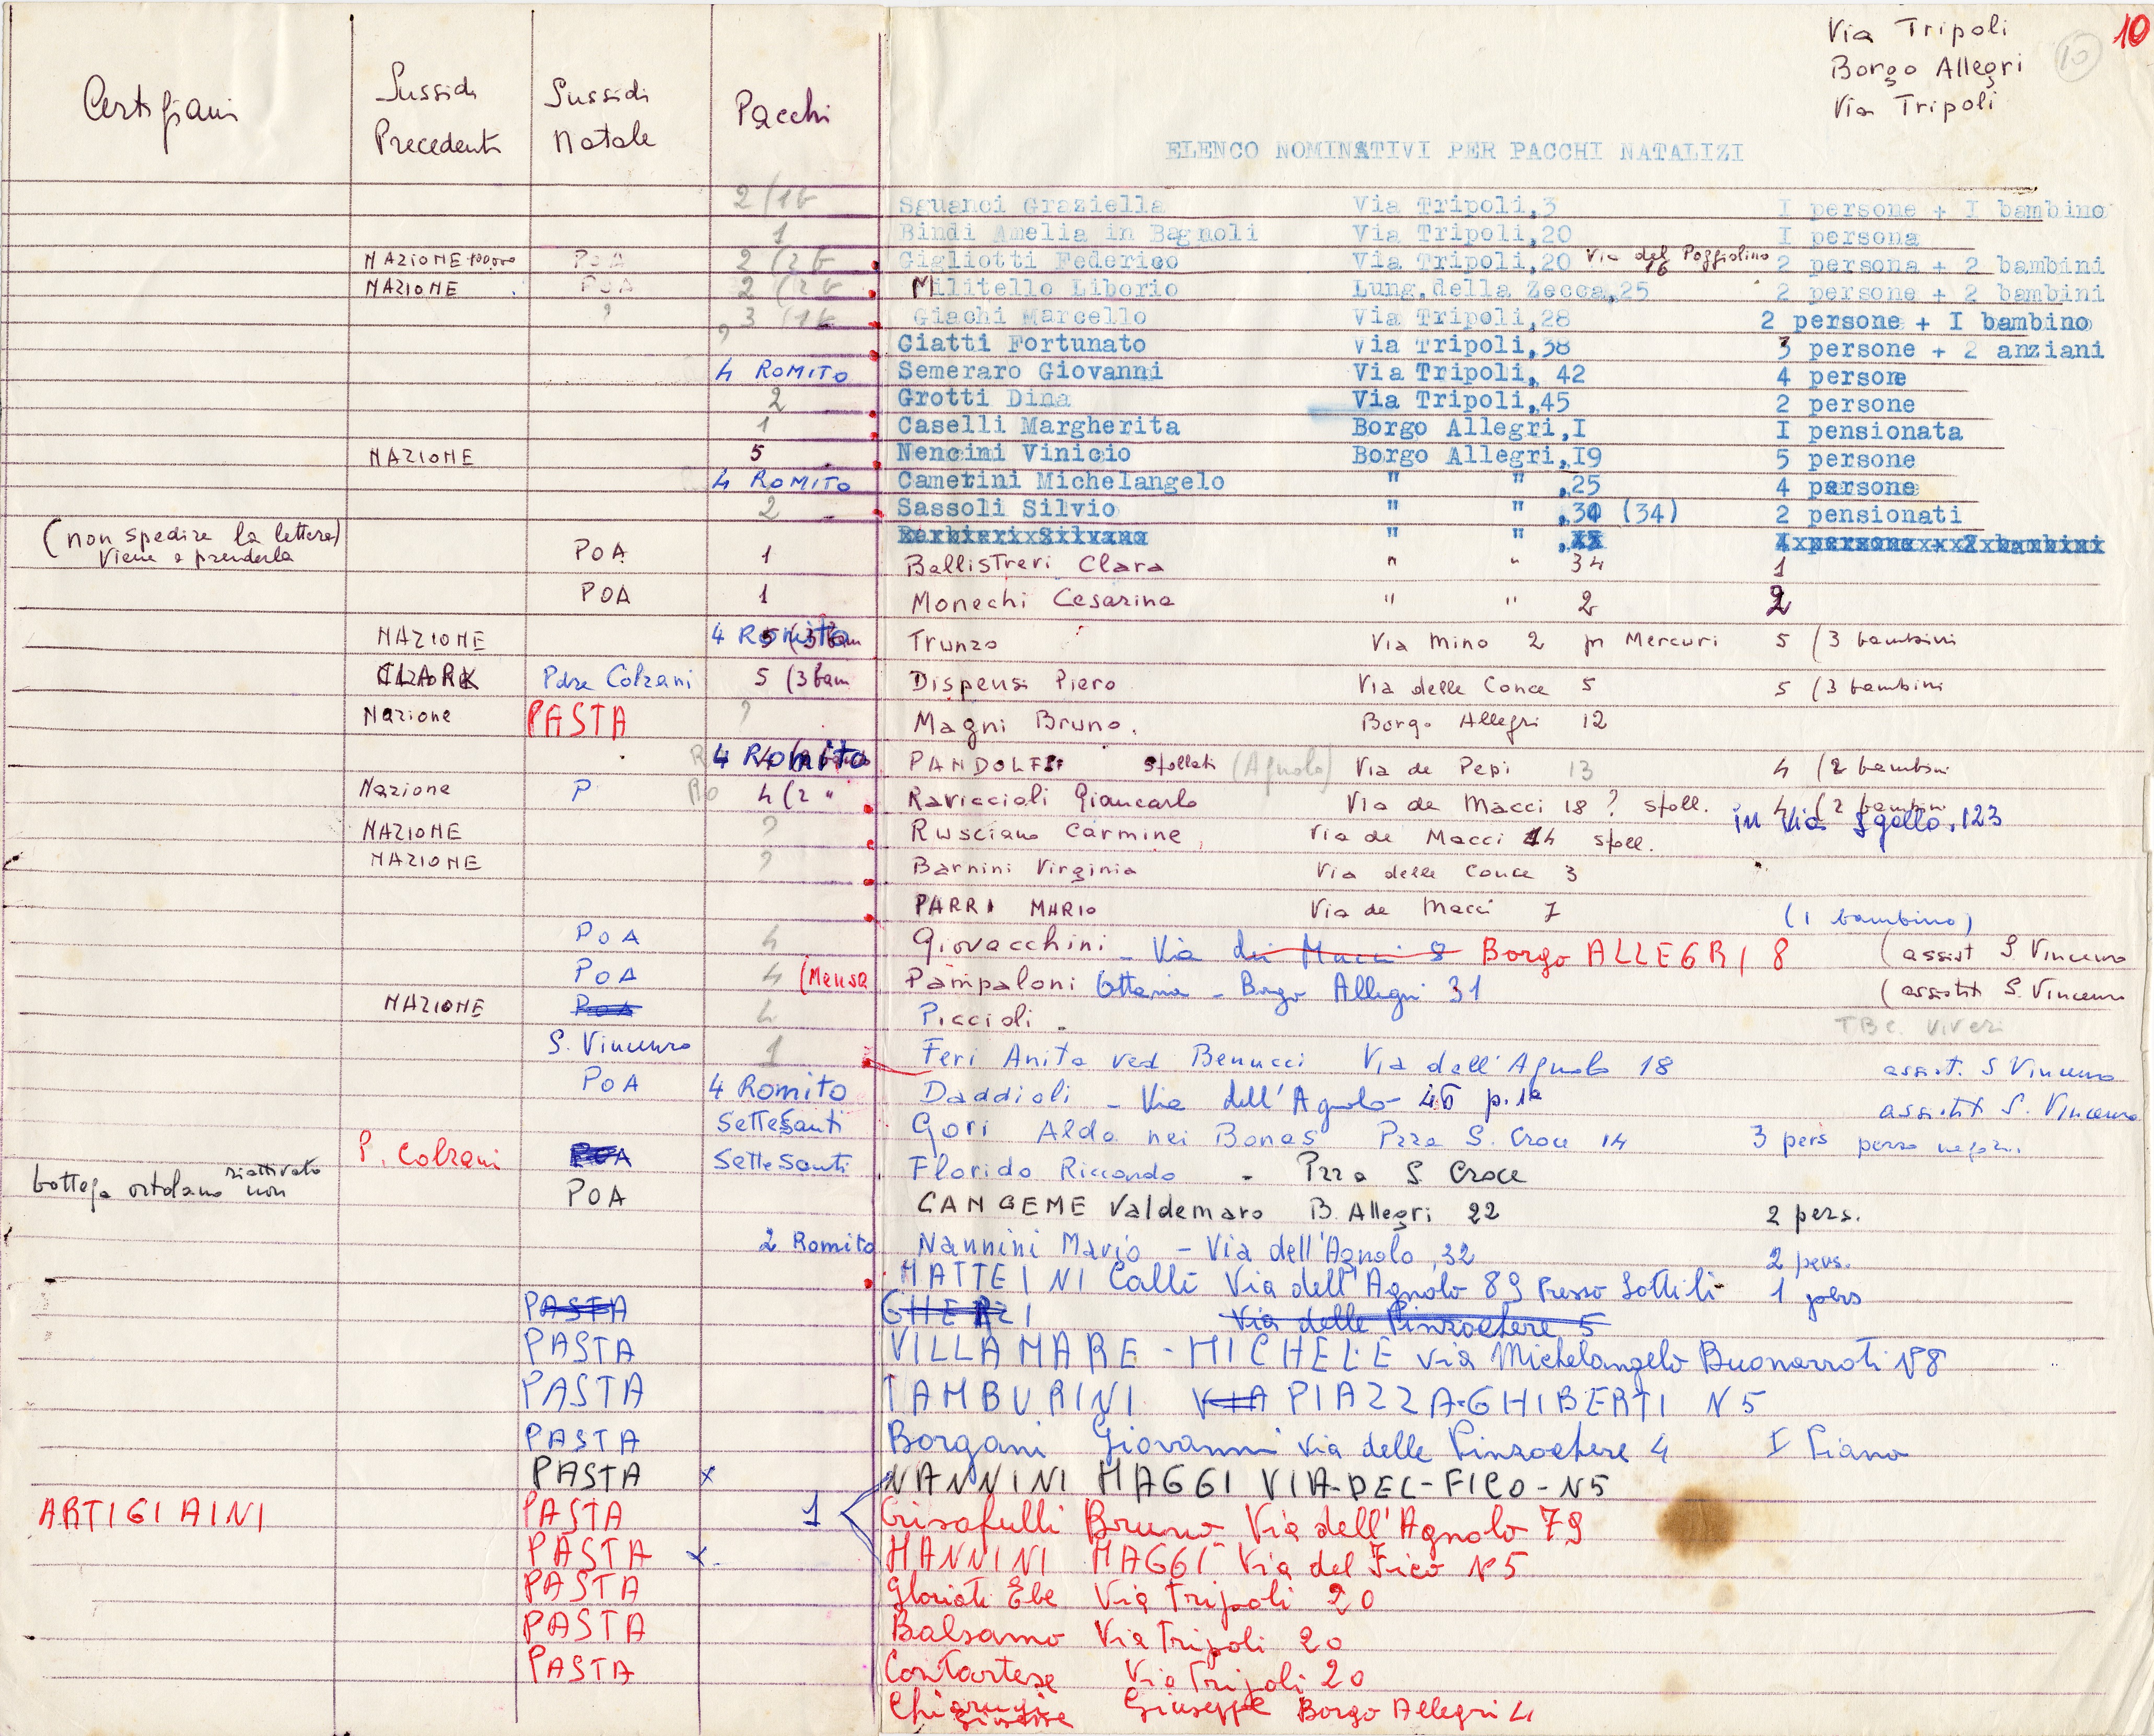 Via Tripoli
Borgo Allegri
Via Tripoli
10
10
Sussidi Precedenti
Sussidi Natale
Pacchi
ELENCO NOMINATIVI PER PACCHI NATALIZI
2 (1b Sguanci Graziella Via Tripoli,3 I persone + I bambino
1 Bindi Amelia in Bagnoli Via Tripoli,20 I persona
NAZIONE 100.000 POA 2 (2 b Gigliotti Federico Via Tripoli,20 Via del Poggiolino 16 2 persona + 2 bambini
NAZIONE POA 2 (2 b Militello Liborio Lung.della Zecca,25 2 persone + 2 bambini
? ? 3 (1 b Giachi Marcello Via Tripoli,28 2 persone + I bambino
Ciatti Fortunato Via Tripoli,38 3 persone + 2 anziani
4 ROMITO Semeraro Giovanni Via Tripoli, 42 4 persone
2 Grotti Dina Via Tripoli,45 2 persone
1 Caselli Margherita Borgo Allegri,I I pensionata
NAZIONE 5 Nencini Vinicio Borgo Allegri,I9 5 persone
4 ROMITO Camerini Michelangelo " " ,25 4 persone
2 Sassoli Silvio " " ,30 (34) 2 pensionati
Barbieri Silvana " " 4 persone + 2 bambini
(non spedire la lettera) viene a prenderla POA 1 Ballistreri Clara " " 34 1
POA 1 Monechi Cesarina " " 2 2
NAZIONE 4 Romito 5 (3 bam Trunzo Via Mino 2 pr Mercuri 5 (3 bambini
CLARK Padre Colzani 5 (3 bam Dispensi Piero Via delle Conce 5 5 (3 bambini
Nazione PASTA ? Magni Bruno. Borgo Allegri 12
4 Romito PANDOLFI sfollati (Agnolo) Via de Pepi 13 4 (2 bambini
Nazione P Ro 4 (2 " Raviccioli Giancarlo Via de Macci 18 ? sfoll. 4 (2 bambini
in Via S gallo, 123
NAZIONE ? Rusciano Carmine, Via de Macci 14 sfoll.
NAZIONE ? Barnini Virginia Via delle Conce 3
PARRI MARIO Via de Macci 7 (1 bambino)
POA 4 Giovacchini - Via dei Macci 8 Borgo ALLEGRI 8 (assist S. Vincenzo
POA 4 (Mensa Pampaloni Ottavia - Borgo Allegri 31 (assistit S. Vincenzo
NAZIONE POA 4 Piccioli - TBC. viveri
S. Vincenzo 1 Feri Anita ved Benucci Via dell'Agnolo 18 assist. S Vincenzo
POA 4 Romito Daddioli - Via dell'Agnolo - 46 p.1º assistit S. Vincenzo
Sette Santi Gori Aldo nei Bonas Pzza S. Croce 14 3 pers perso negozi.
P. Colzani POA Sette Santi Florido Riccardo - Pzza S. Croce
bottega ortolano non riattivato POA CANGEME Valdemaro B. Allegri 22 2 pers.
2 Romito Nannini Mario - Via dell'Agnolo, 32 2 pers.
MATTEINI Calli Via dell'Agnolo 89 Presso Sottili 1 pers
PASTA GHERZI Via delle Pinzochere 5
PASTA VILLAMARE - MICHELE via Michelangelo Buonarroti N8
PASTA TAMBURINI VIA PIAZZA-GHIBERTI N 5
PASTA Borgani Giovanni via delle Pinzochere 4 I Piano
PASTA x NANNINI MAGGI VIA-DEL-FICO-N5
ARTIGIAINI PASTA 1 Crisafulli Bruno Via dell'Agnolo 79
PASTA x NANNINI MAGGI Via del Fico N 5
PASTA Gloriati Ebe Via Tripoli 20
PASTA Balsamo Via Tripoli 20
PASTA Contartese Via Tripoli 20
Chiarugi Giuseppe Borgo Allegri 4